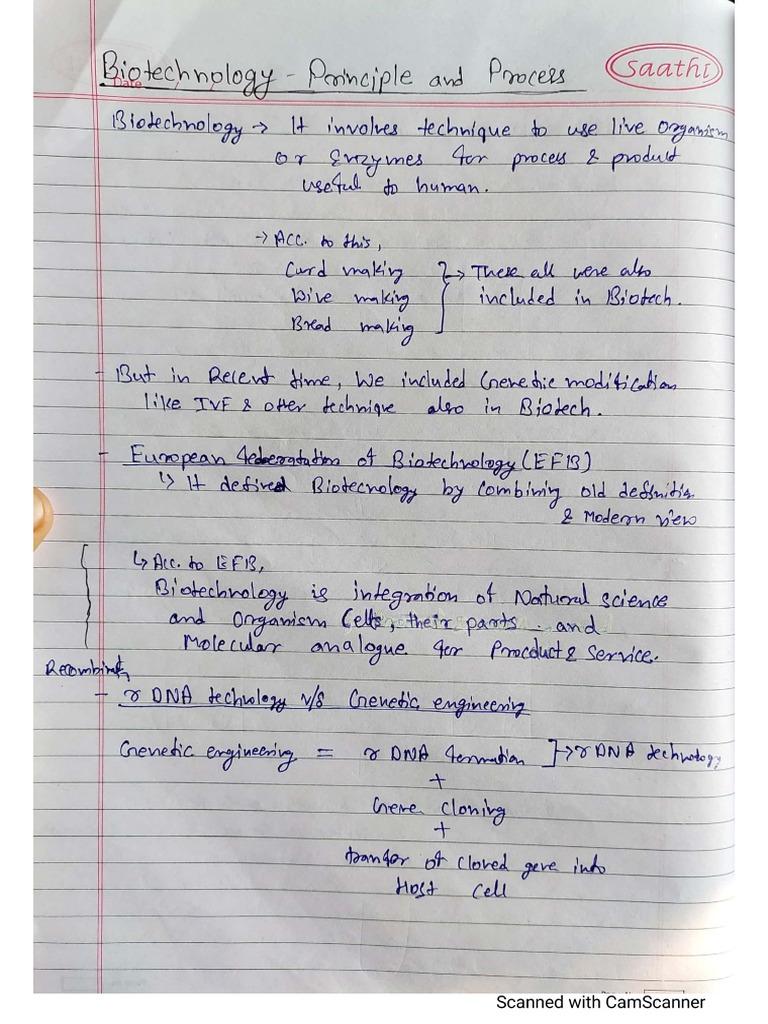 Biotechnology - Principle and Process
Saathi
Date
Biotechnology → It involves technique to use live organism
or Enzymes for process & product
useful to human.
→ Acc. to this,
Curd making
Wine making
Bread making
→ These all were also
included in Biotech.
- But in Recent time, We included Genetic modification
like IVF & other technique also in Biotech.
- European federatation of Biotechnology (EFB)
↳ It defined Biotecnology by Combining old definitin
& Modern view
↳ Acc. to EFB,
Biotechnology is integration of Natural science
and Organism Cells, their parts and
Molecular analogue for Procduct & Service.
Recombinant
- r DNA technology v/s Genetic engineering
Genetic engineering = r DNA formation ] → r DNA technology
+
Gene Cloning
+
tranfer of cloned gene into
Host Cell
Scanned with CamScanner